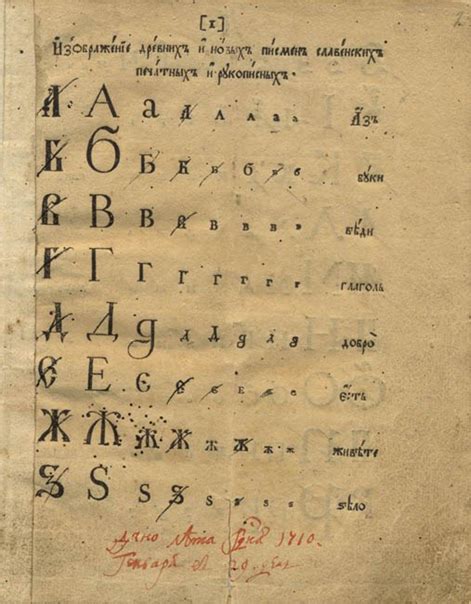 [1]
Изображенїе древнихъ и новыхъ писменъ славенскихъ
печатныхъ и рукописныхъ.
А А а А а а а а Азъ
Б Б Б Б Б б б б буки
В В В В в в в в вѣди
Г Г Г Г г г г г глаголь
Д Д д д д д д д добро
Є Е Є є є є є є єсть
Ж Ж Ж Ж Ж ж ж ж живѣте
Ѕ Ѕ Ѕ Ѕ ѕ ѕ ѕ ѕ ѕѣло
Дано лѣта 1710.
Генваря 29 день